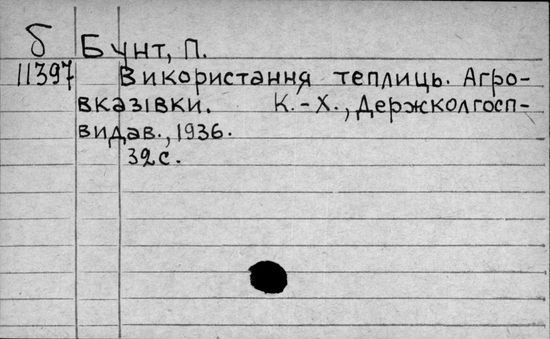 б Бунт, П.
11397 Використання теплиць. Агро-
вказівки. К.-Х., Держколгосп-
видав., 1936.
32 с.